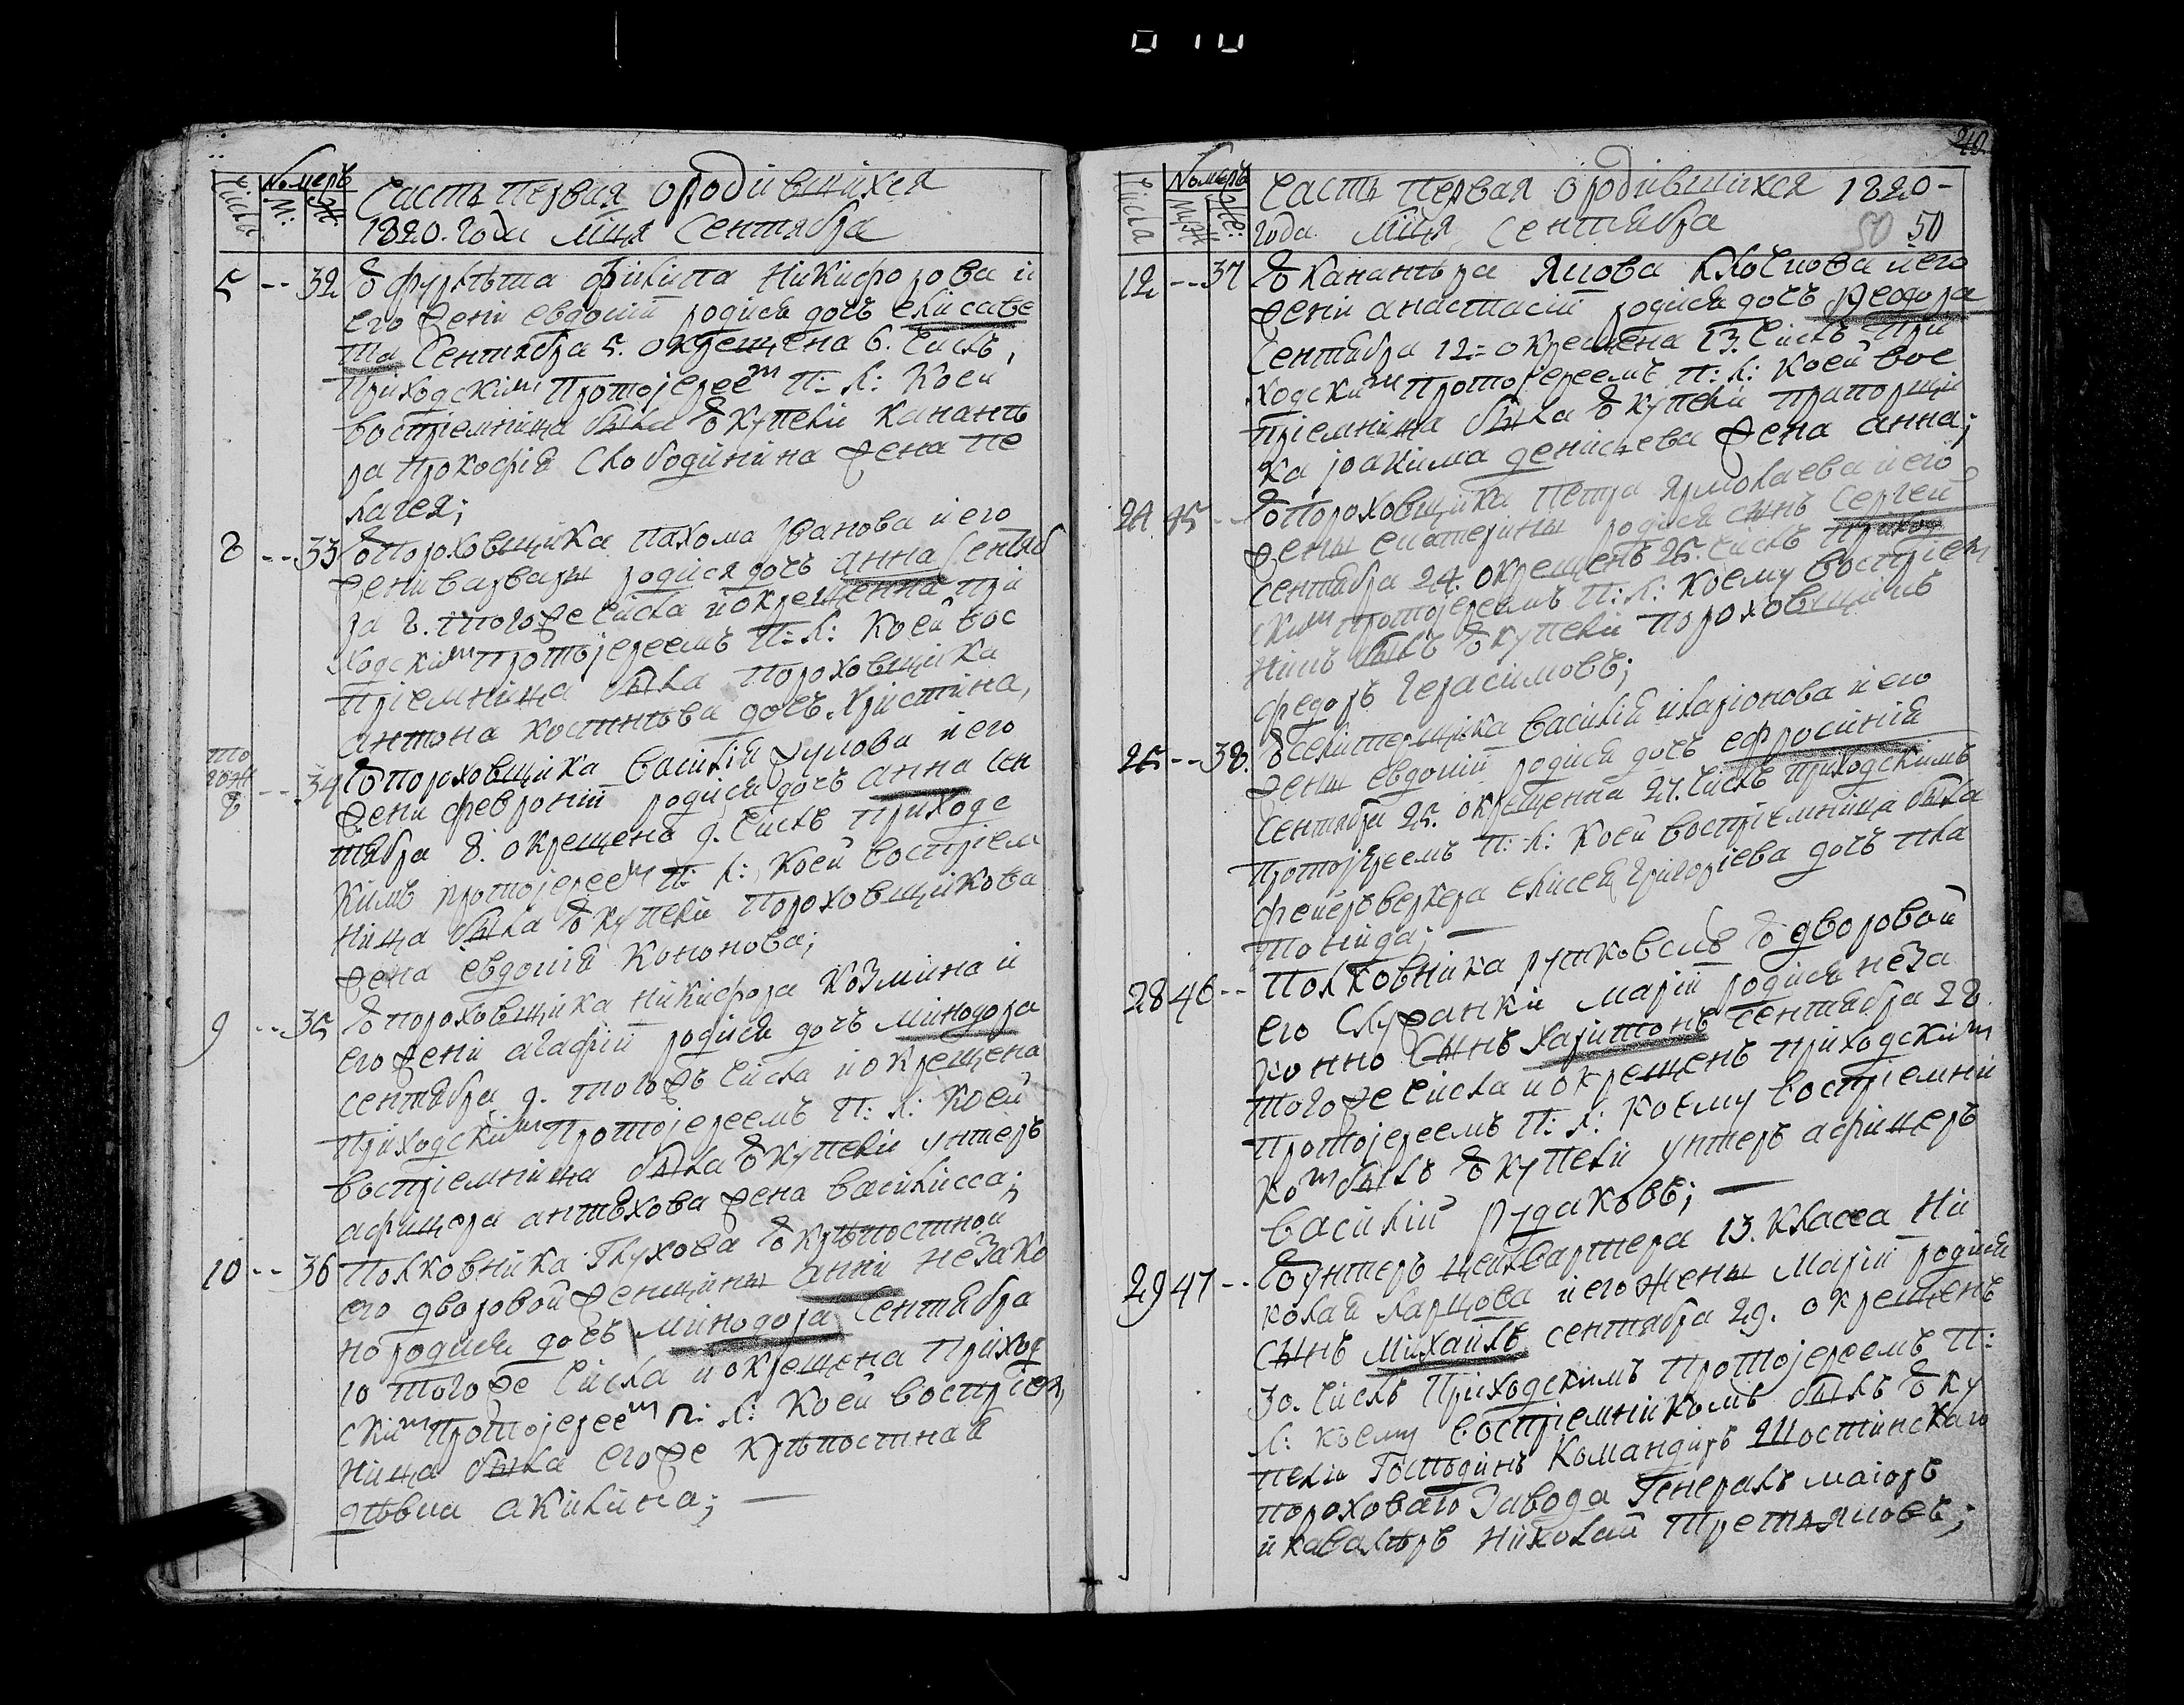 010
Числа Номеръ М: Ж Часть первая о родившихся
1820. года мца Сентября
5 -- 32 У фурлѣта Филипа Никифорова и
его жени Евдокіи родися дочь Елисаве
та Сентября 5. окрещена 6. числъ,
Приходским Протоіереем П: Л: Коей
воспріемница была у купели Канани
ра Прокофія Слободинина жена Пе
лагея;
8 -- 33 У Пороховщика Пахома Иванова и его
жени Варвары родися дочь Анна Сентяб
ря 8. того же числа и окрещенна При
ходским Протоіереемъ П: Л: Коей вос
пріемница была Пороховщика
Антона Костинѣва дочъ Христина,
то гож 8 -- 34 У Пороховщика Василія Зулова и его
жени Февроніи родися дочь Анна Сен
тября 8. окрещена 9. числъ Приходс
кимъ Протоіереем П: Л: Коей воспріем
ница была у купели Пороховщикова
жена Евдокія Кононова;
9 -- 35 У Пороховщика Никифора Козмина и
его жени Агафіи родися дочь Минодора
Сентября 9. того жъ числа и окрещена
Приходским Протоіереемъ П: Л: Коей
воспріемница была у купели унтеръ
афицера Антѣхова жена Василисса;
10 -- 36 Полковника Глухова у крѣпостной
его дворовой женщины Анни незако
но родися дочь Минодора Сентября
10 того же числа и окрещена Приход
ским Протоіереем П: Л: Коей воспріем
ница была его же крѣпостная
дѣвка Акилина;
40
Числа Номеръ Муж Же: Часть первая о родившихся 1820-
года мца Сентября 50 50
12 -- 37 У Кананѣра Якова Клочкова и его
жени Анастасіи родися дочъ Феодора
Сентября 12= окрещена 13. числъ При
ходским Протоіереемъ П: Л: Коей вос
пріемница была у купели Прапорщи
ка Іоакима Денисева жена Анна;
24 45 -- У Пороховщика Петра Ярмолаева и его
жены Екатерины родися сынъ Сергей
Сентября 24. окрещенъ 25. числъ Приход
ским Протоіереемъ П: Л: Коему воспріем
никъ былъ у купели Пороховщикъ
Федоръ Герасимовъ;
25 -- 38. У Селитерщика Василія Иларіонова и его
жены Евдокіи родися дочь Ефросинія
Сентября 25. окрещенна 27. числъ Приходскимъ
Протоіереемъ П: Л: Коей воспріемница была
фейерверкера Елисея Григоріева дочъ Пла
тонида;
28 46 -- Полковника Рутковскъ у дворовой
его служанки Маріи родися неза
конно сынъ Харитонъ Сентября 28
того же числа и окрещенъ Приходским
Протоіереемъ П: Л: Коему воспріемни
ком былъ у купели унтеръ афицеръ
Василій Рудаковъ;
29 47 -- У унтеръ цейхвартера 13. класса Ни
колая Ларцова и его жены Маріи родися
сынъ Михаилъ Сентября 29. окрещенъ
30. числъ Приходскимъ Протоіереемъ П:
Л: Коему воспріемникомъ былъ у ку
пели Господинъ Командиръ Шостинскаго
Пороховаго Завода Генералъ маіоръ
и кавалѣръ Николай Третьяковъ;